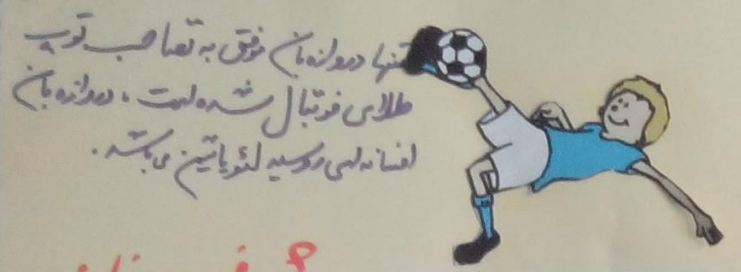 تنها دروازه بان موفق به تصاحب توپ
طلای فوتبال شده است، دروازه بان
افسانه ای روسیه لئو یاشین می باشد.